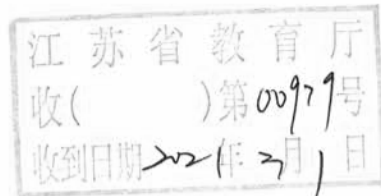 江苏省教育厅
收( )第00979号
收到日期2021年2月1日